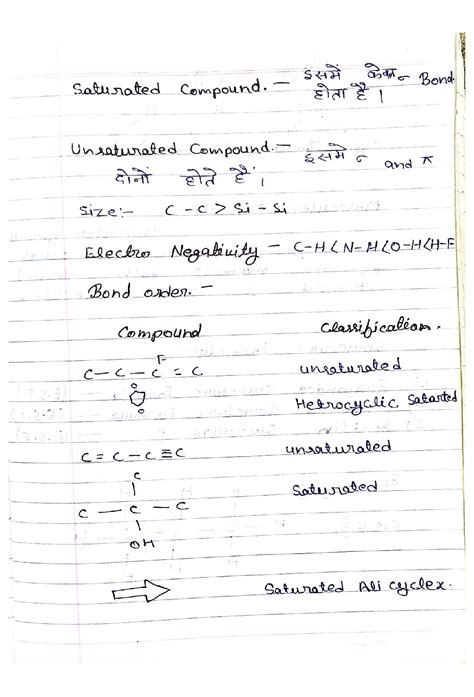 Saturated Compound. — इसमें केवल ~ Bond
होता है ।
Unsaturated Compound. — इसमें ~ and π
दोनों होते हैं ।
Size:- C - C > Si - Si
Electro Negativity - C-H < N-H < O-H < H-F
Bond order. -
Compound Classification.
F
C - C - C = C unsaturated
Hetrocyclic Satarted
C = C - C ≡ C unsaturated
C
C - C - C Saturated
OH
Saturated Ali cyclex.